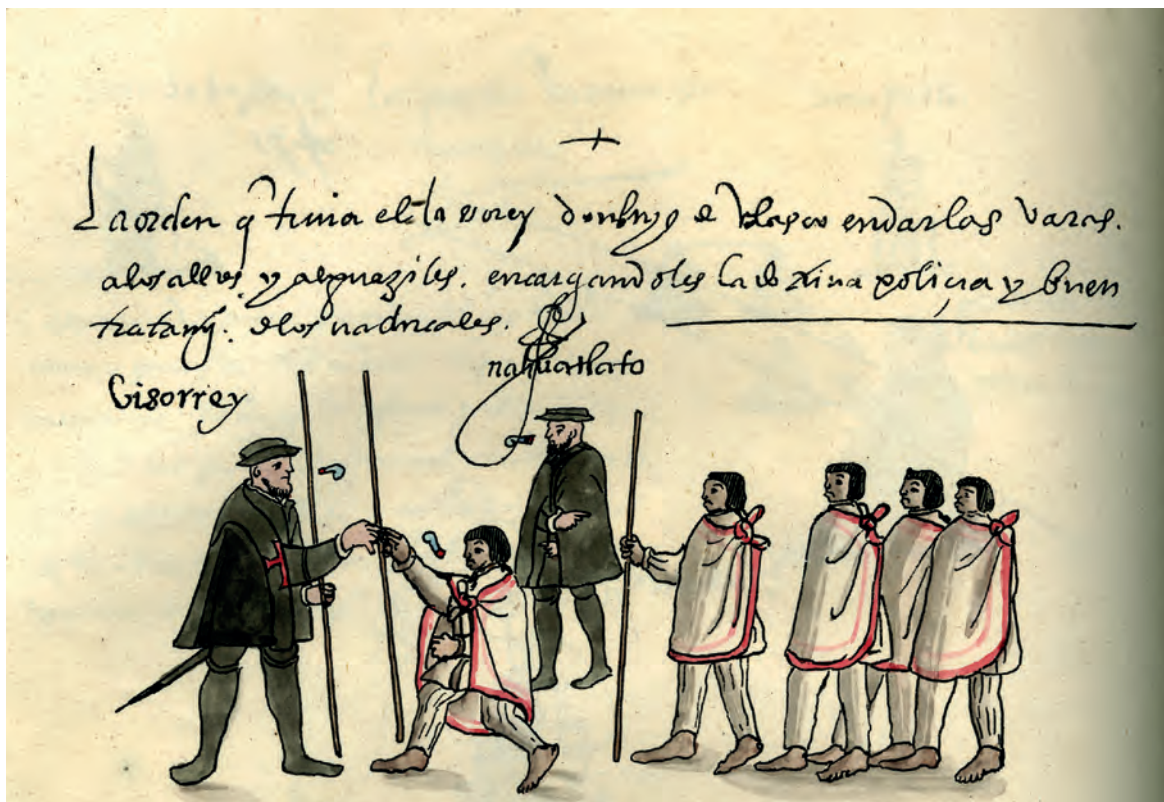 La orden q̃ tinia el yla visorey don luys de Velasco en dar las varas.
a los alldes y alguaziles. encargandoles la doxina poliçia y buen
tratamyº. de los naturales.
nahuatlato
Visorrey